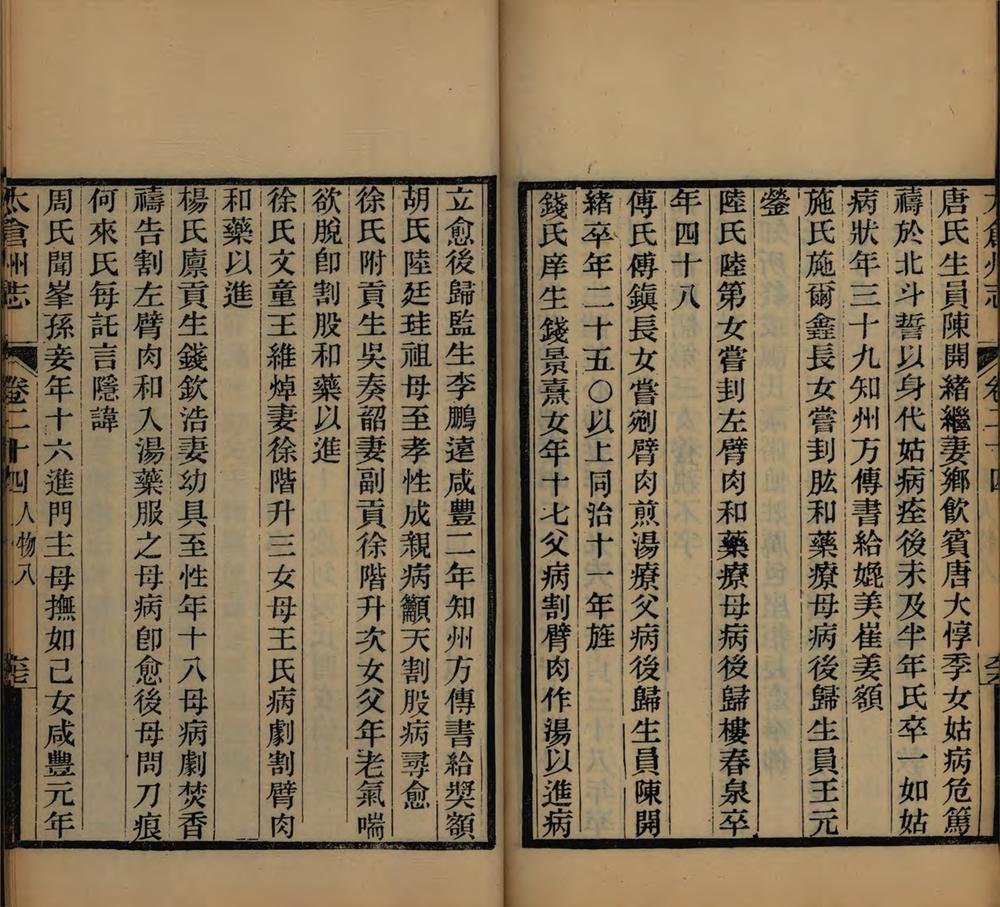 唐氏生員陳開緒繼妻鄉飲賓唐大惇季女姑病危篤
禱於北斗誓以身代姑病痊後未及半年氏卒一如姑
病狀年三十九知州方傳書給媲美崔姜額
施氏施爾鑫長女嘗刲肱和藥療母病後歸生員王元
鎣
陸氏陸第女嘗刲左臂肉和藥療母病後歸樓春泉卒
年四十八
傅氏傅鎮長女嘗剜臂肉煎湯療父病後歸生員陳開
緒卒年二十五〇以上同治十一年旌
錢氏庠生錢景熹女年十七父病割臂肉作湯以進病
立愈後歸監生李鵬遠咸豐二年知州方傳書給獎額
胡氏陸廷珪祖母至孝性成親病籲天割股病尋愈
徐氏附貢生吳奏韶妻副貢徐階升次女父年老氣喘
欲脫卽割股和藥以進
徐氏文童王維焯妻徐階升三女母王氏病劇割臂肉
和藥以進
楊氏廪貢生錢欽浩妻幼具至性年十八母病劇焚香
禱告割左臂肉和入湯藥服之母病卽愈後母問刀痕
何來氏每託言隱諱
周氏聞峯孫妾年十六進門主母撫如己女咸豐元年
太倉州志 卷二十四 人物八